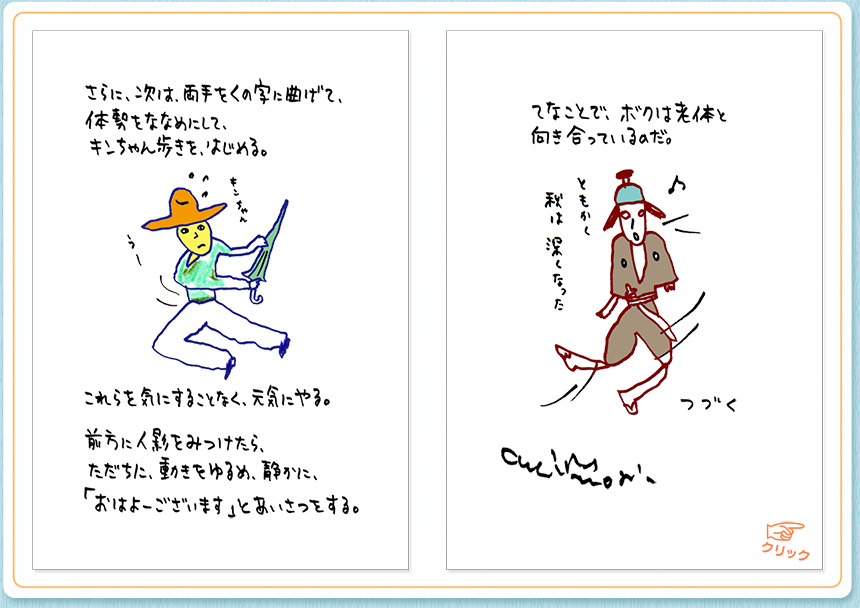 さらに、次は、両手をくの字に曲げて、
体勢をななめにして、
キンちゃん歩きを、はじめる。
キンちゃん
うー
これらを気にすることなく、元気にやる。
前方に人影をみつけたら、
ただちに、動きをゆるめ、静かに、
「おはよーございます」とあいさつをする。
てなことで、ボクは老体と
向き合っているのだ。
ともかく
秋は深くなった
つづく
クリック